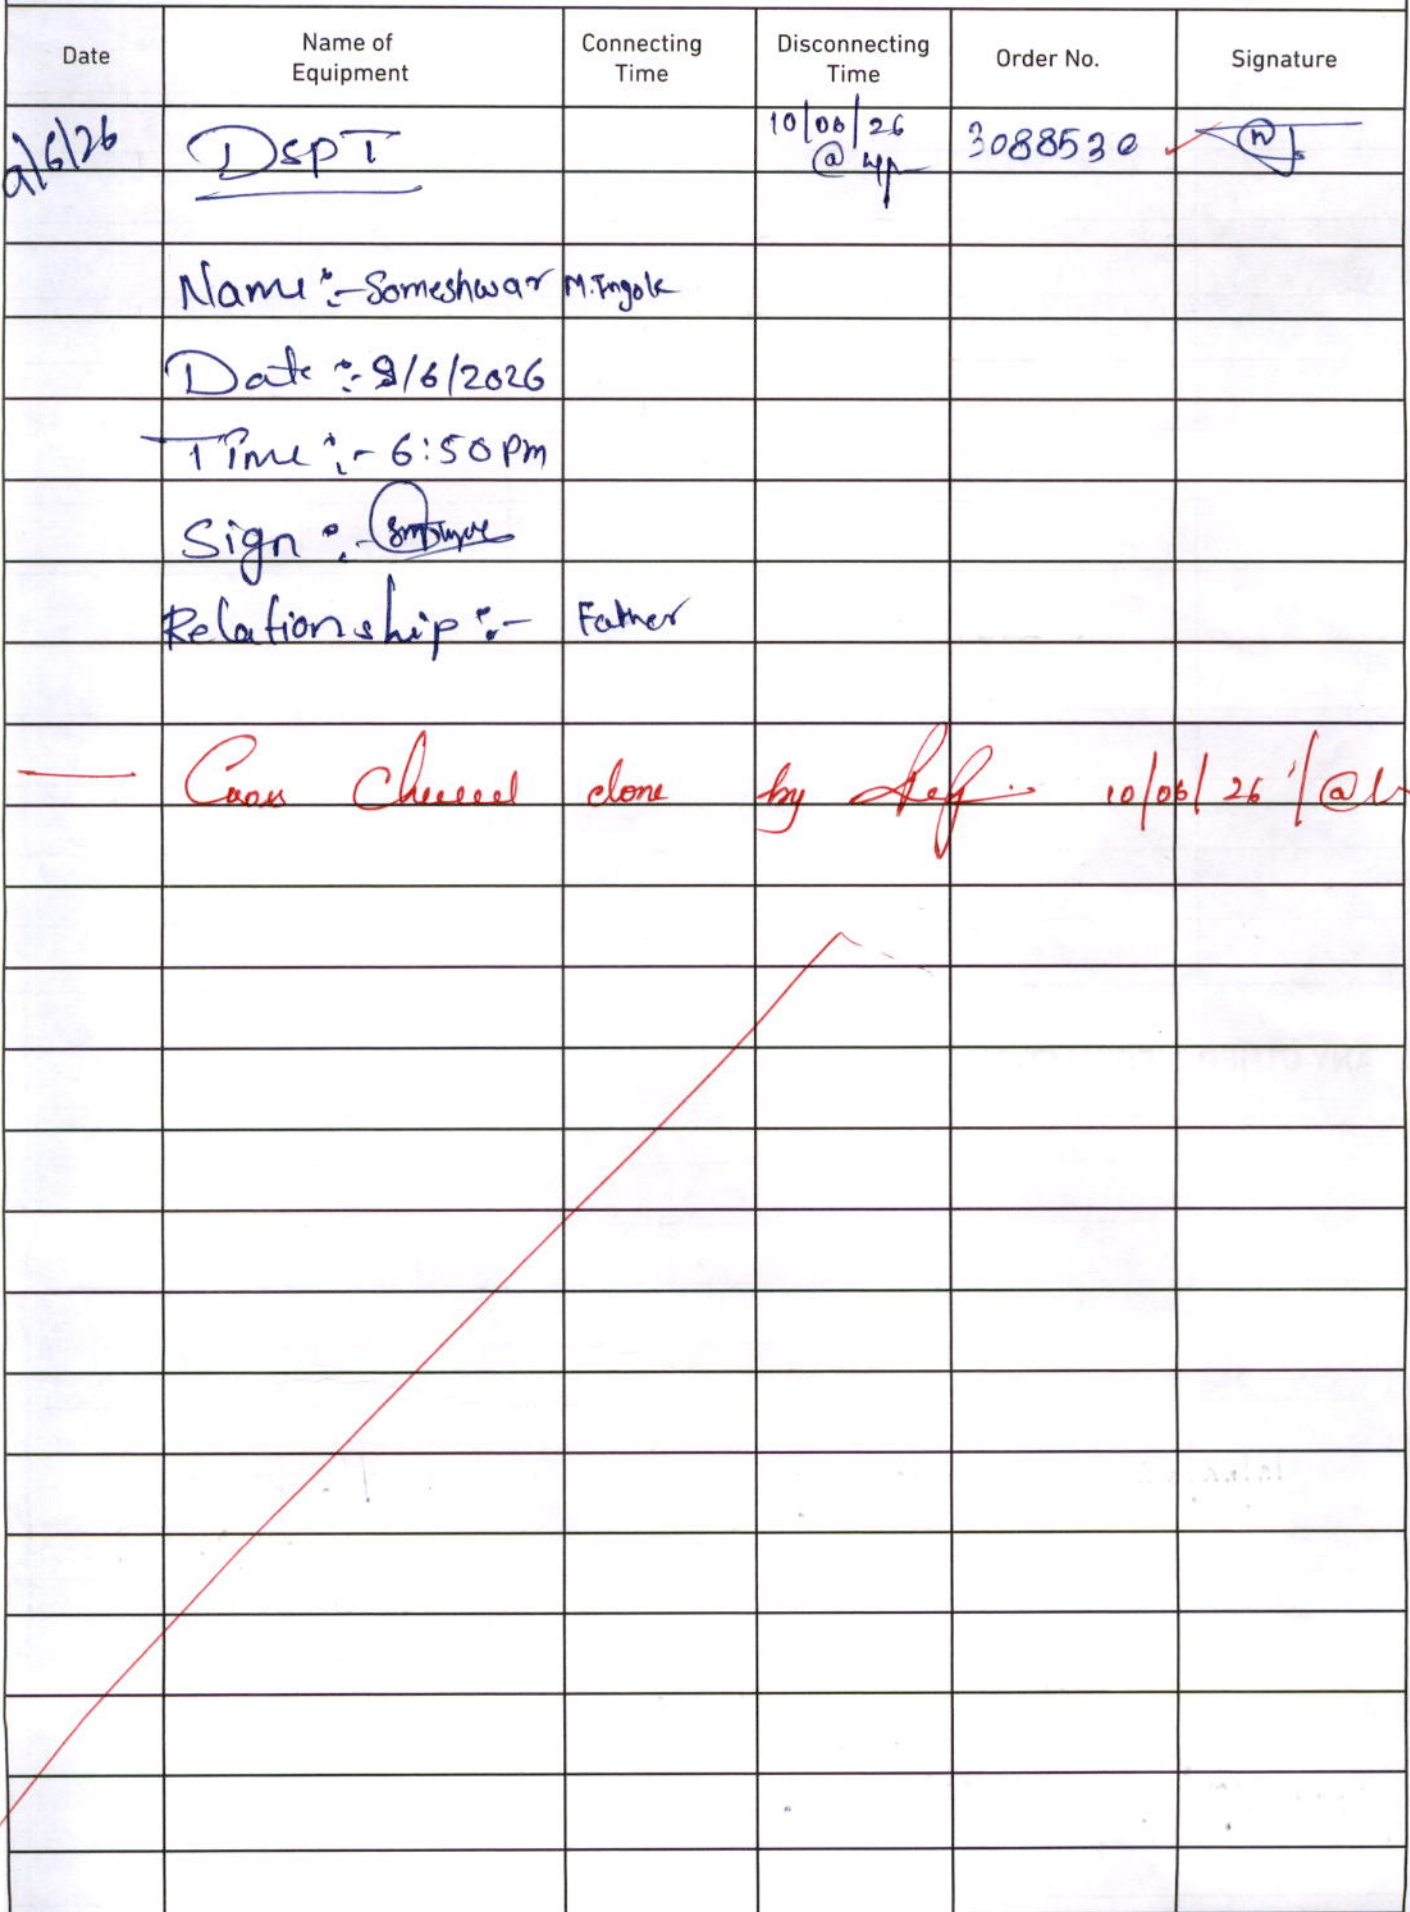 Date Name of Equipment Connecting Time Disconnecting Time Order No. Signature
9/6/26 DSPT 10/06/26 3088530
@ 4p
Name :- Someshwar M. Ingole
Date :- 9/6/2026
Time :- 6:50 Pm
Sign :-
Relationship :- Father
done by 10/06/26 @